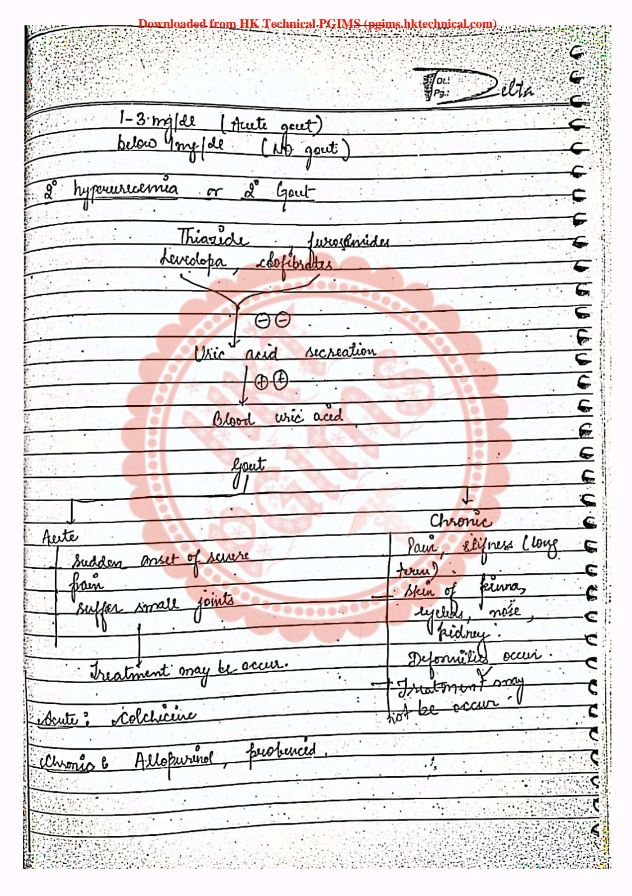 Downloaded from HK Technical PGIMS (pgims.hktechnical.com)
Dt.:
Pg.:
Delta
1-3 mg/dl (Acute gout)
below 1mg/dl (NO gout)
2° hyperurecemia or 2° Gout
Thiazide, furosemides
Levedopa, clofibrates
⊖⊖
Uric acid secreation
⊕⊕
Blood uric acid
Gout
Acute
Sudden onset of severe
pain
suffer small joints
Treatment may be occur.
Chronic
Pain, stifness (long
term).
Skin of pinna,
eyelids, nose,
kidney.
Deformities occur.
Treatment may
not be occur.
Acute: Colchicine
Chronic: Allopurinol, probencid.